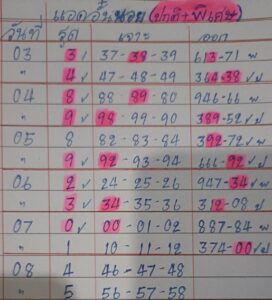 แอดอั้นหอย (ปกติ+พิเศษ)
วันที่ รูด เจาะ ออก
03 3√ 37-38-39 613-71 พ
" 4√ 47-48-49 364-38√ป
04 8√ 88-99-80 946-66 พ
" 9√ 98-99-90 389-52√ป
05 8 82-83-84 392-72√พ
" 9√ 92-93-94 666-92√ป
06 2√ 24-25-26 947-34√พ
" 3√ 34-35-36 312-08 ป
07 0√ 00-01-02 887-84 พ
" 1 10-11-12 374-00√ป
08 4 46-47-48
" 5 56-57-58